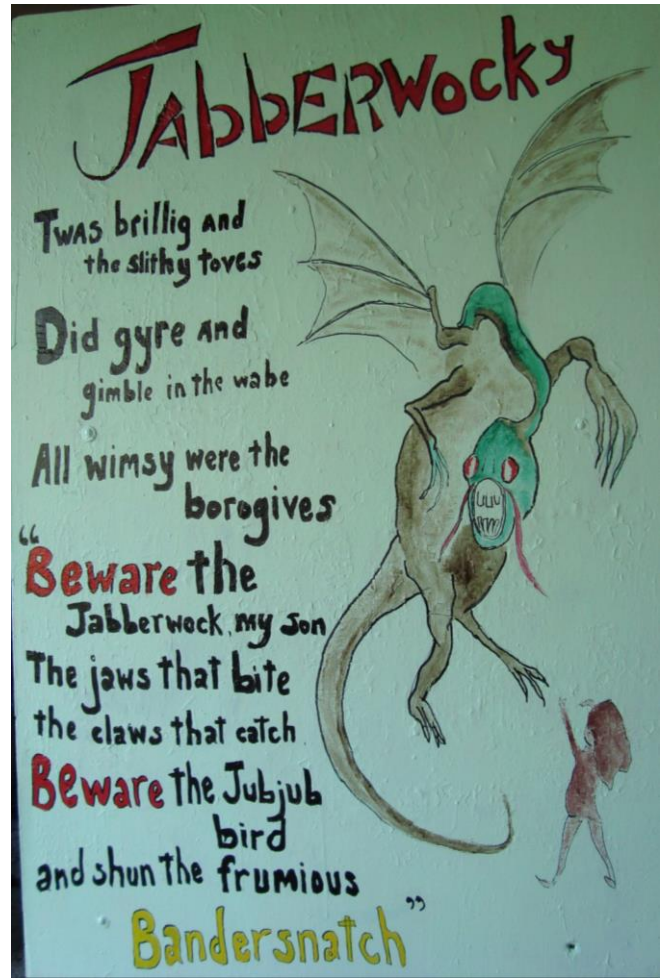 JAbbERWocky
TWAS brillig AND
the slithy toves
Did gyre AND
gimble in the wabe
All wimsy were the
borogives
“Beware the
Jabberwock, my son
The jaws that bite
the claws that catch
Beware the Jubjub
bird
and shun the frumious
Bandersnatch”